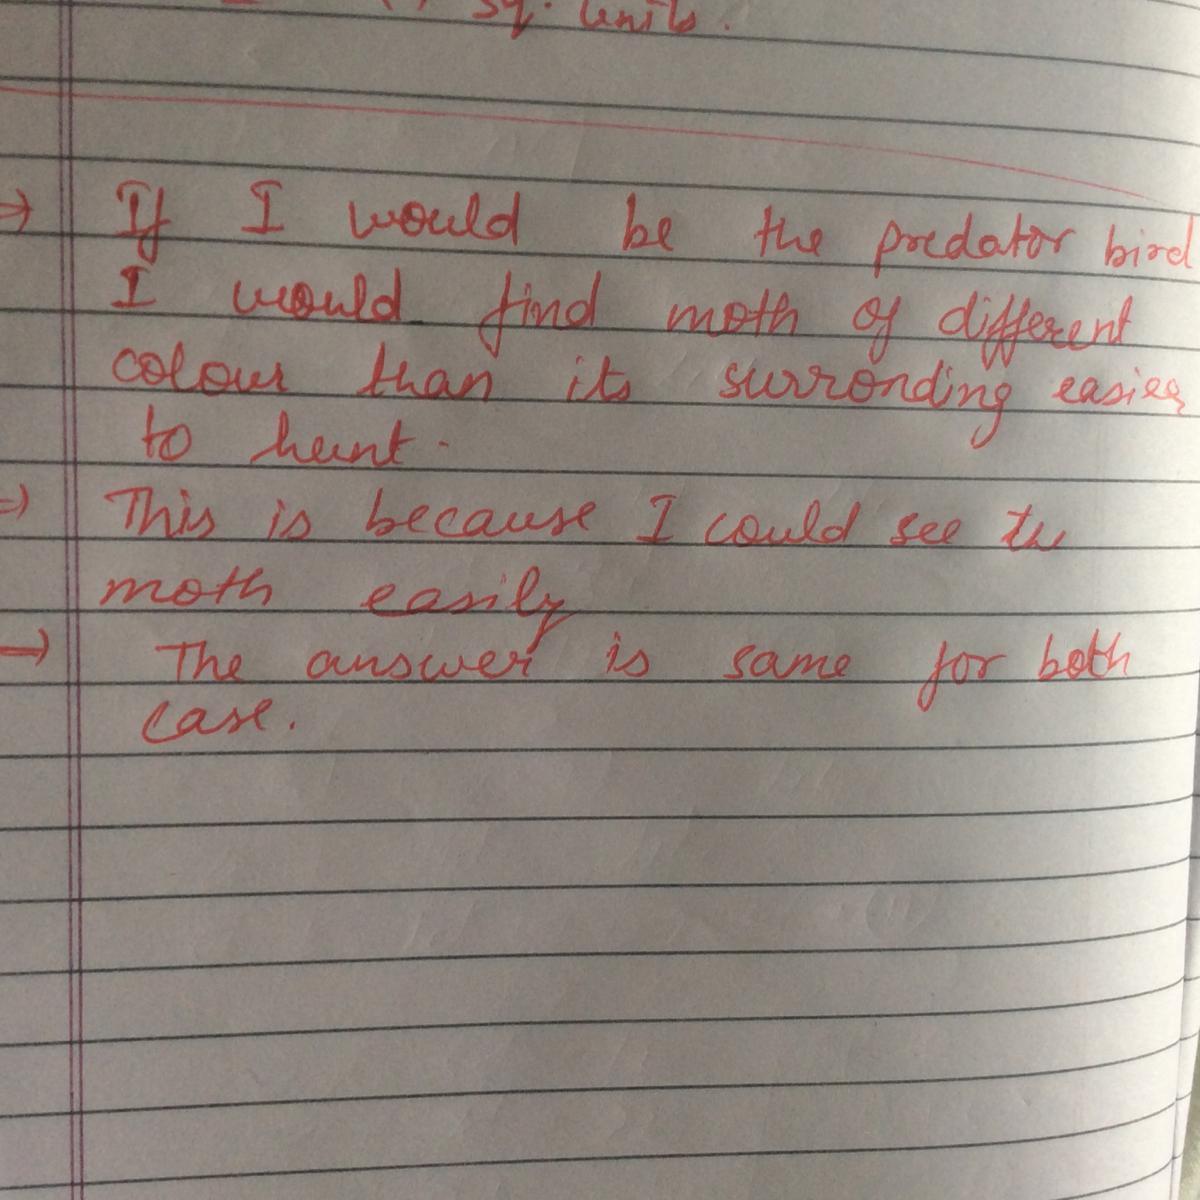 sq. Units.
⇒ If I would be the predator bird
I would find moth of different
colour than its surronding easier
to hunt.
⇒ This is because I could see the
moth easily
→ The answer is same for both
case.